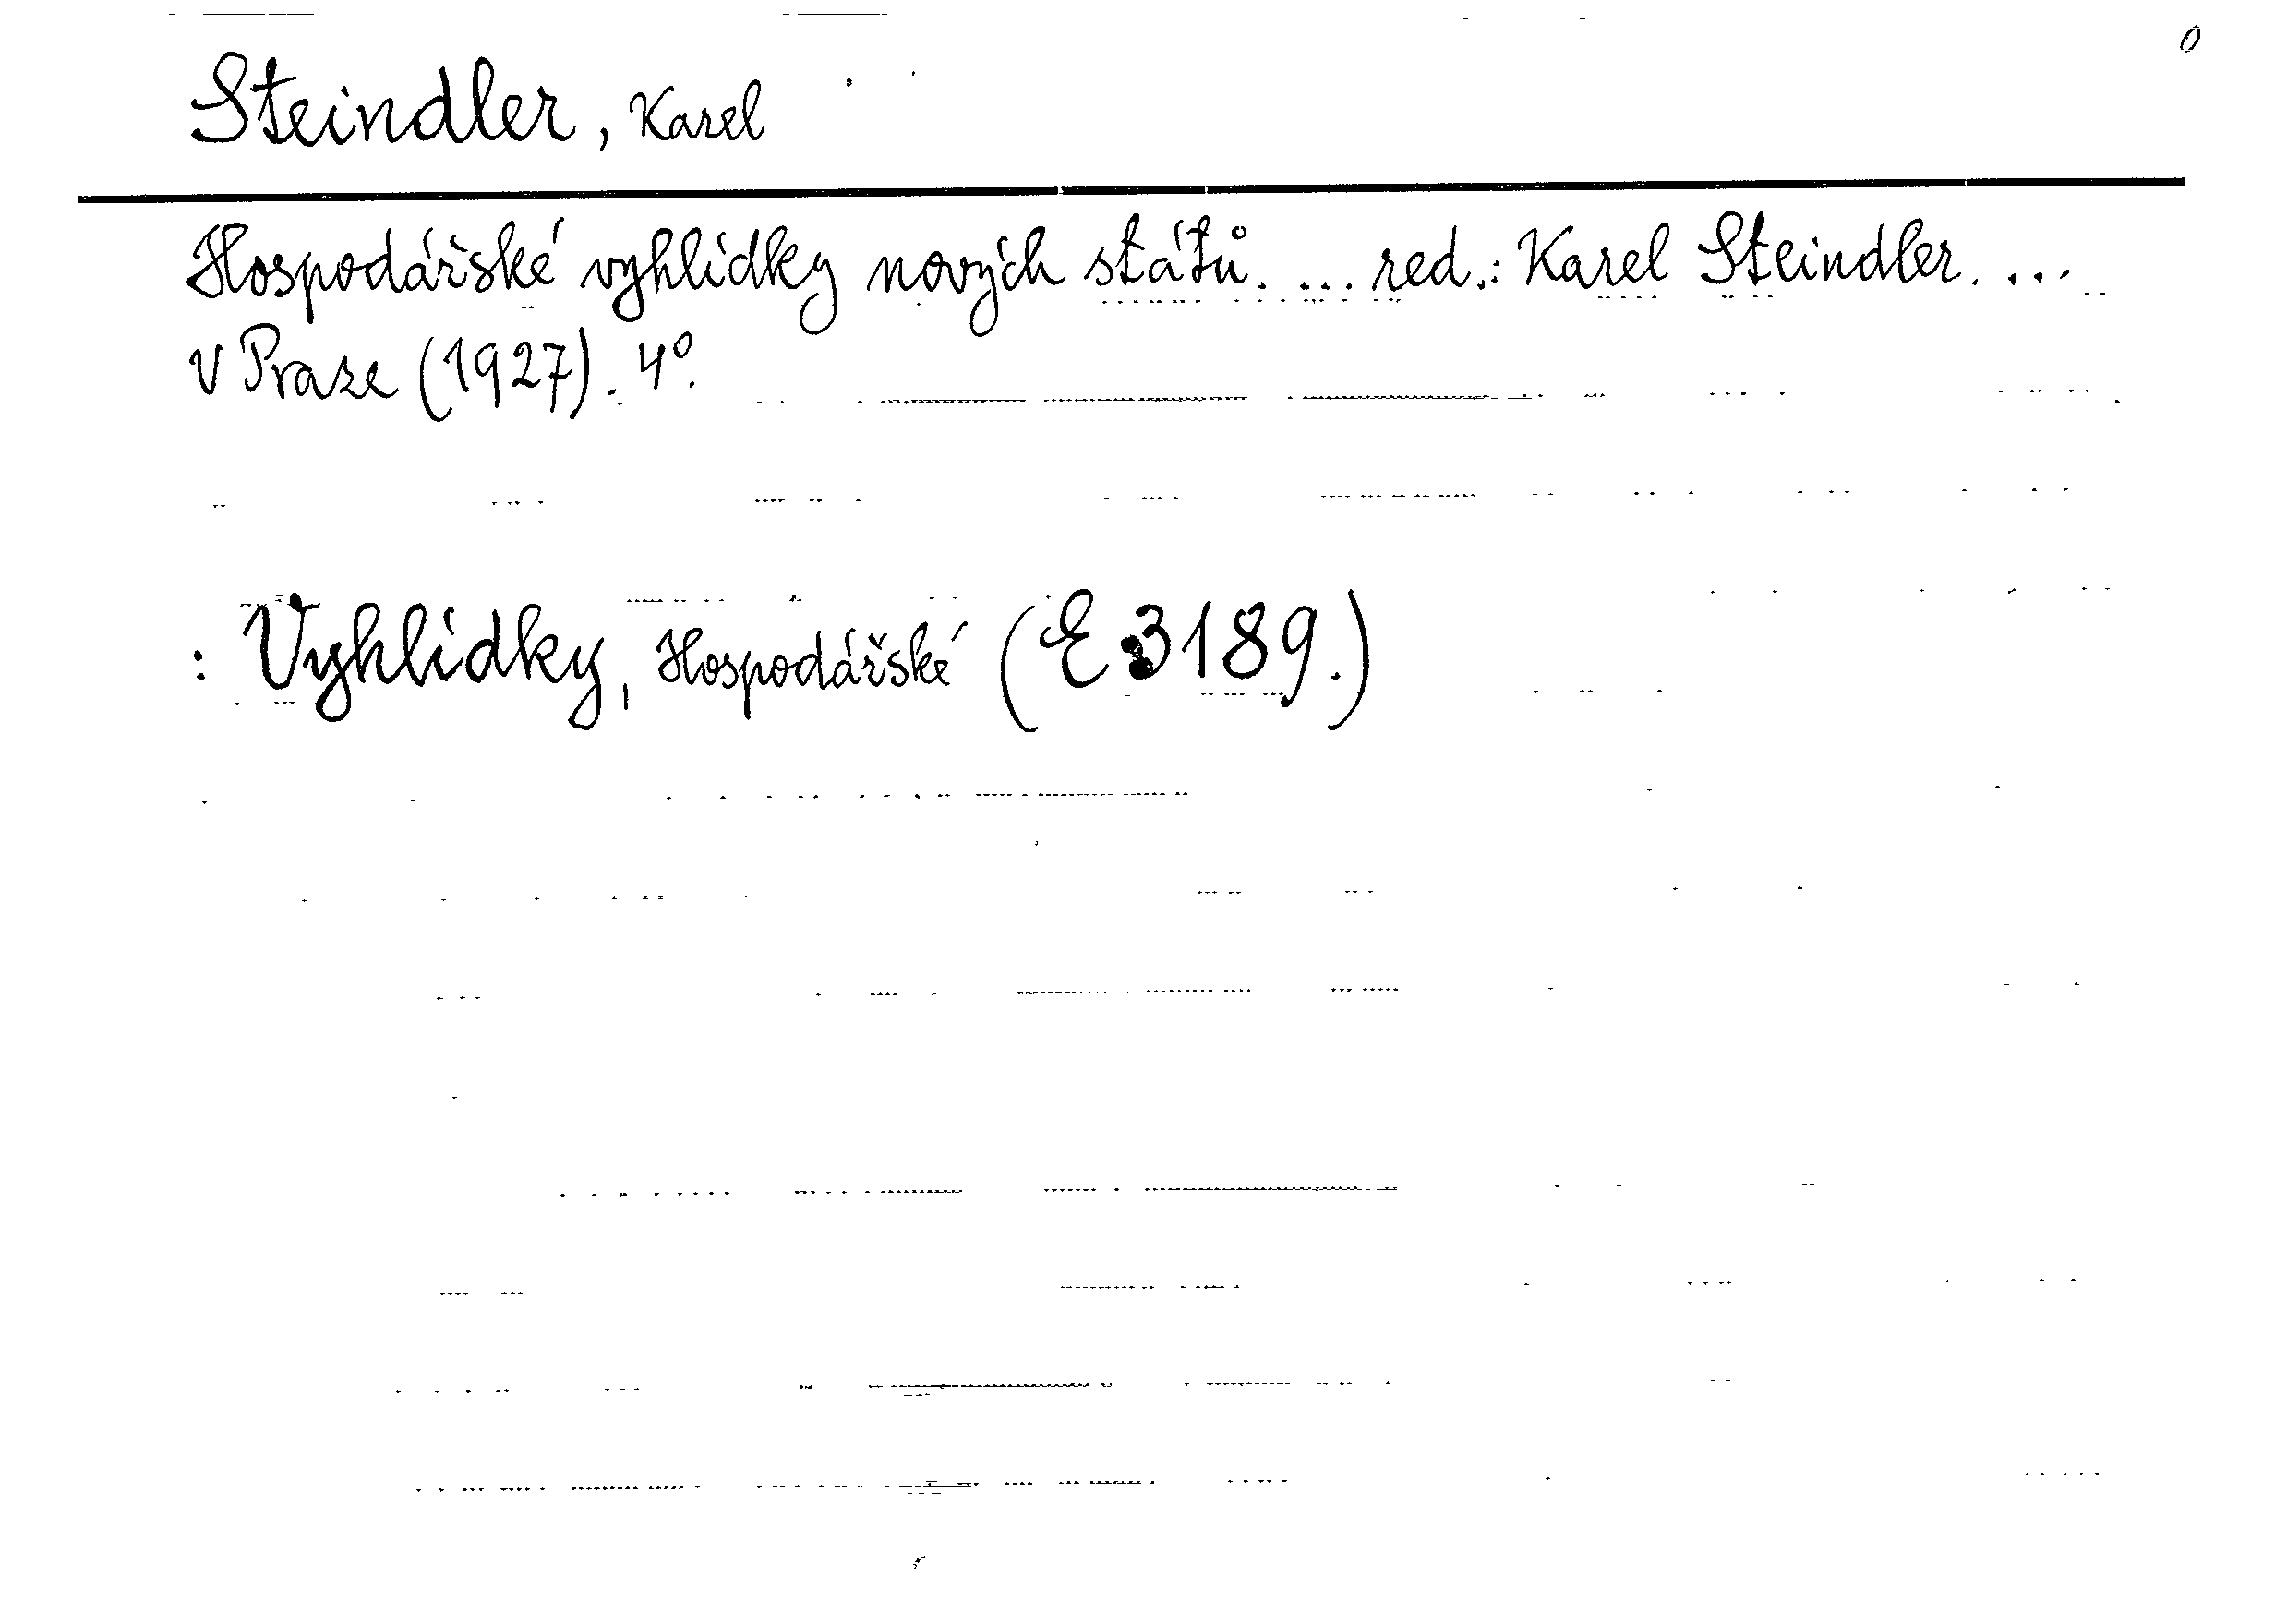 0
Steindler, Karel
Hospodářské vyhlídky nových států. ... red.: Karel Steindler. ...
V Praze (1927). 4°.
: Vyhlídky, Hospodářské (E 3189.)